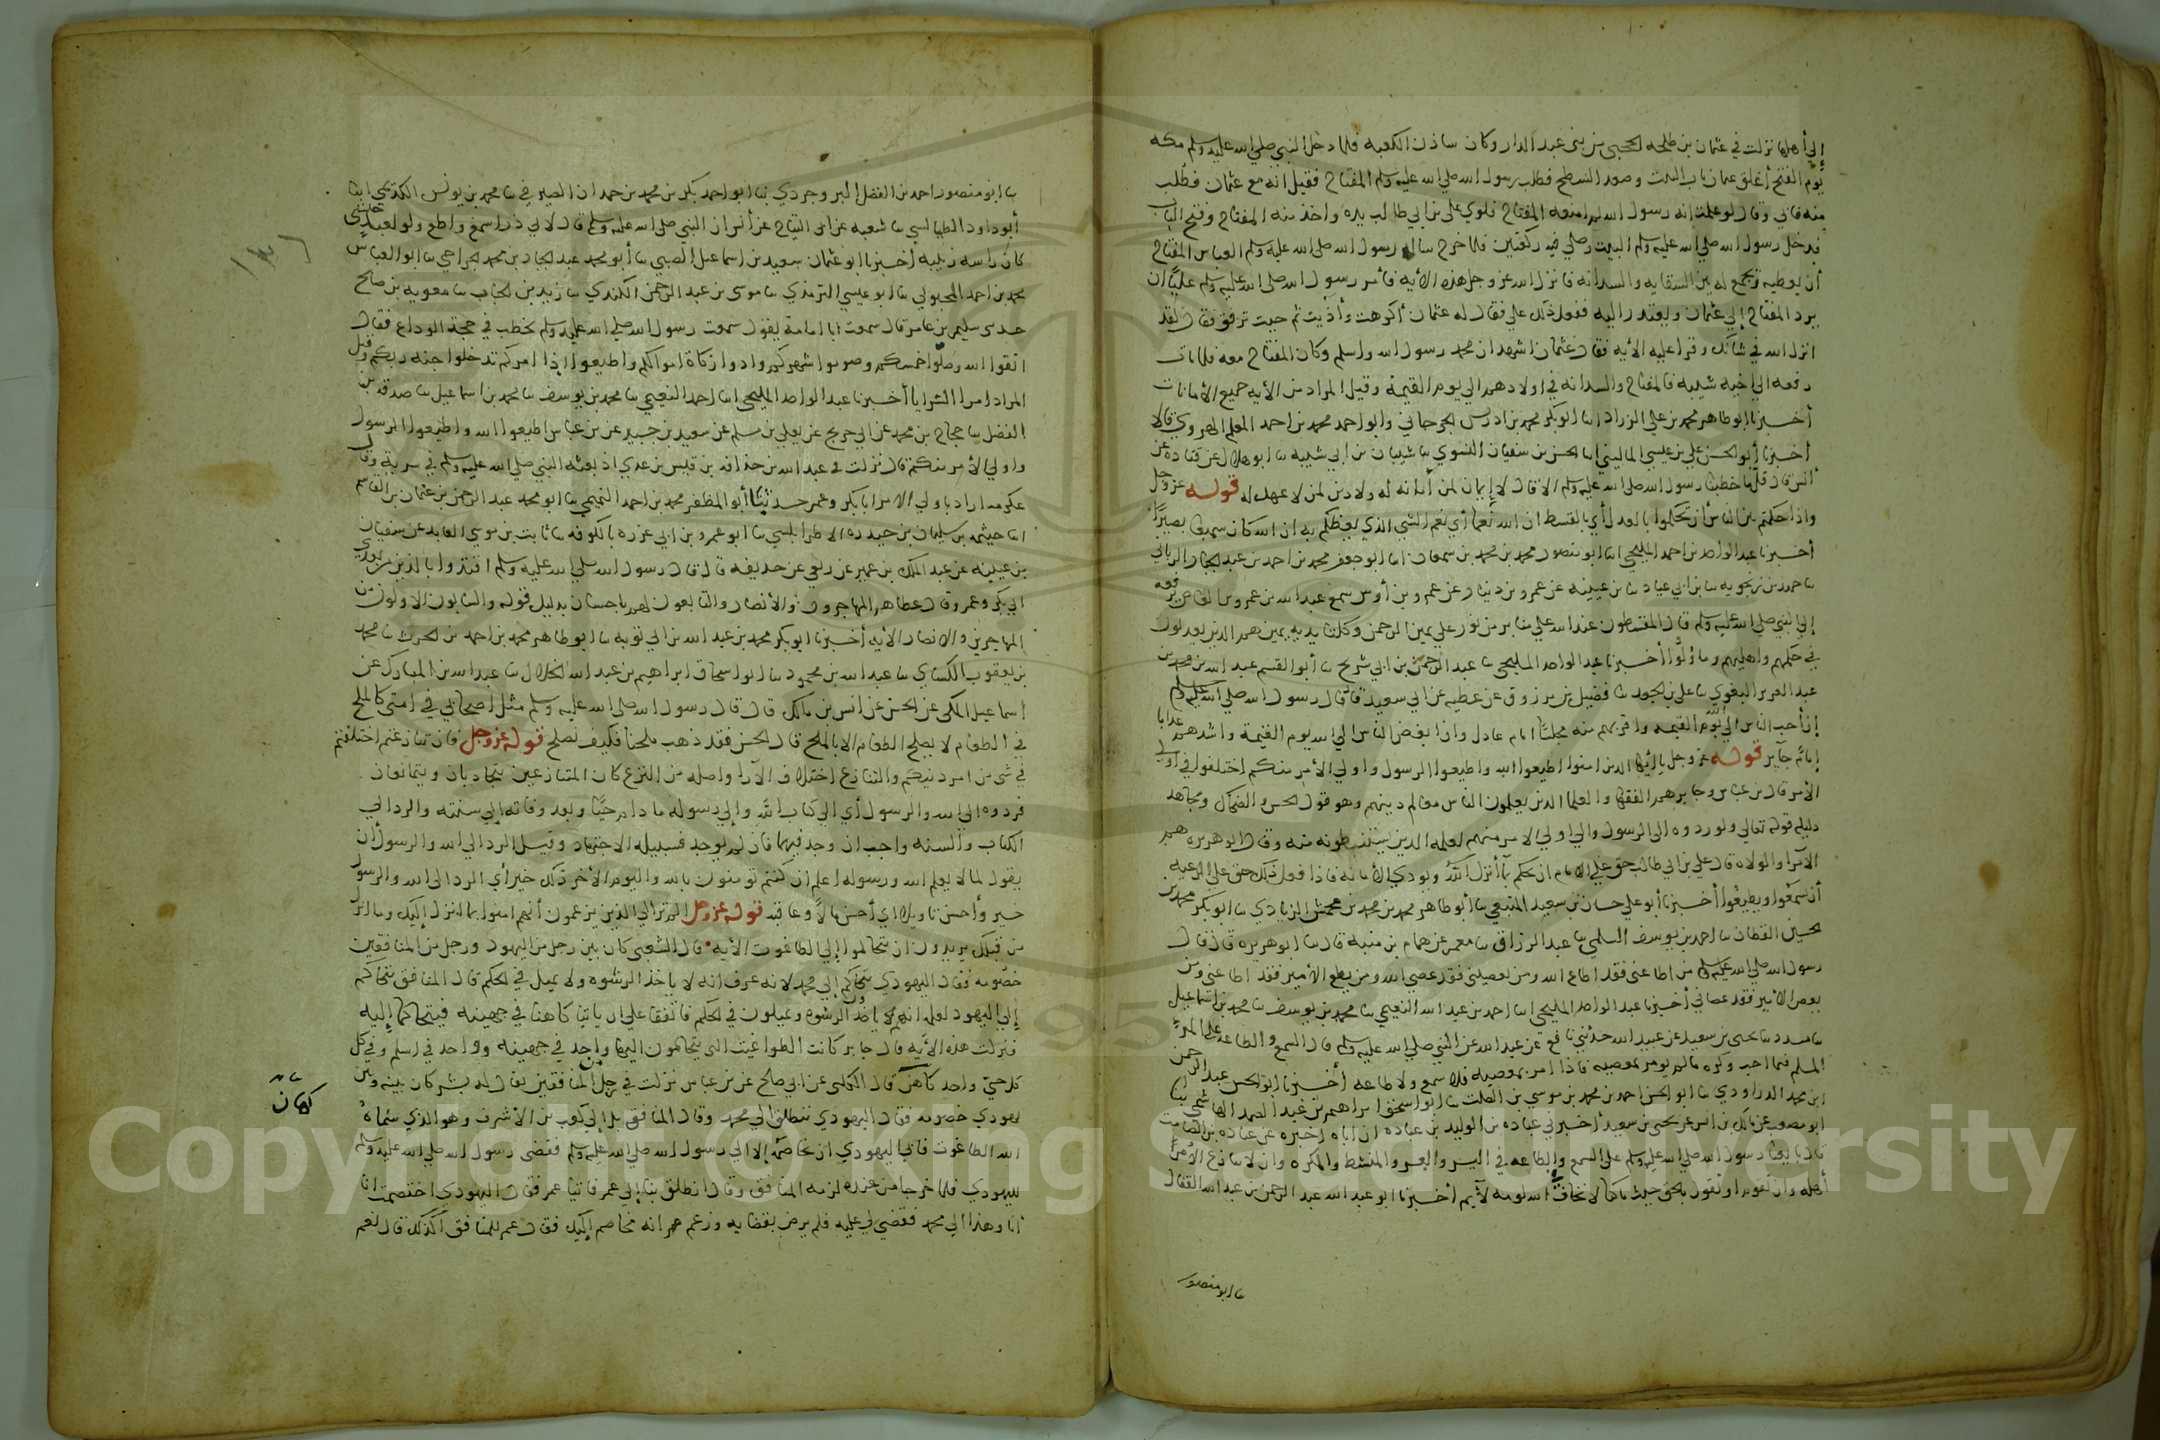 إلى أهلها نزلت في عثمان بن طلحه الحجبي من بني عبد الدار وكان سادن الكعبه فلما دخل النبي صلى الله عليه وسلم مكه
يوم الفتح أغلق عثمان باب البيت وصعد السطح فطلب رسول الله صلى الله عليه وسلم المفتاح فقيل انه مع عثمان فطلب
منه فابي وقال لو علمت انه رسول الله لم امنعه المفتاح فلوي علي بن ابي طالب يده واخذ منه المفتاح وفتح الباب
فدخل رسول الله صلى الله عليه وسلم البيت وصلي فيه ركعتين فلما خرج ساله رسول الله صلى الله عليه وسلم العباس المفتاح
أن يعطيه ويجمع له بين السقايه والسدانه فانزل الله عز وجل هذه الأيه فأمر رسول الله صلى الله عليه وسلم عليًا ان
يرد المفتاح إلي عثمان ويعتذر اليه ففعل ذلك علي فقال له عثمان أكرهت وأذيت ثم جيت ترفق فقال لقد
انزل الله في شانك وقرا عليه الأيه فقال عثمان اشهد ان محمد رسول الله واسلم وكان المفتاح معه فلما مات
دفعه الي اخيه شيبه فالمفتاح والسدانه في اولادهم الي يوم القيمة وقيل المراد من الأيه جميع الأمانات
أخبرنا ابو طاهر محمد بن علي الزراد انا ابو بكر محمد بن ادريس الجرجاني وابو احمد محمد بن احمد المعلم الهروي قالا
أخبرنا أبو الحسن علي بن عيسي الماليني انا الحسن بن سفيان النسوي ثنا شيبان بن ابي شيبه ثنا ابو هلال عن قتاده عن
أنس قال قلّ ما خطبنا رسول الله صلى الله عليه وسلم الا قال لا إيمان لمن لا أمانه له ولا دين لمن لا عهد له قوله عز وجل
واذا حكمتم بين الناس أن تحكموا بالعدل أي بالقسط ان الله نعما أي نعم الشي الذي يعظكم به ان الله كان سميعا بصيرًا
أخبرنا عبد الواحد بن احمد المليحي انا ابو منصور محمد بن محمد بن سمعان انا ابو جعفر محمد بن احمد بن عبد الجبار الرياني
ثنا حميد بن زنجويه ثنا بن ابي عباد ثنا بن عيينه عن عمرو بن دينار عن عمرو بن أوس سمع عبد الله بن عمرو بن العاص يرفعه
إلى النبي صلى الله عليه وسلم قال المقسطون عند الله علي منابر من نور علي يمين الرحمن وكلتا يديه يمين هم الذين يعدلون
في حكمهم واهليهم وما ولّوا أخبرنا عبد الواحد المليحي ثنا عبد الرحمن بن ابي شريح ثنا أبو القسم عبد الله بن محمد بن
عبد العزيز البغوي ثنا علي بن الجعد ثنا فضيل بن مرزوق عن عطيه عن ابي سعيد قال قال رسول الله صلى الله عليه وسلم
إن أحب الناس الي الله يوم القيمه واقربهم منه مجلسًا امام عادل وان ابغض الناس الي الله يوم القيمة واشدهم عذابا
إمام جاير قوله عز وجل يا ايها الذين امنوا اطيعوا الله واطيعوا الرسول واولي الأمر منكم اختلفوا في اولي
الأمر قال بن عباس وجابر هم الفقها والعلما الذين يعلمون الناس معالم دينهم وهو قول الحسن والضحاك ومجاهد
دليله قوله تعالي ولو ردوه الى الرسول والي اولي الامر منهم لعلمه الذين يستنبطونه منه وقال ابو هريره هم
الأمرا والولاه قال علي بن ابي طالب حق علي الامام ان يحكم بما أنزل الله ويودي الأمانه فاذا فعل ذلك حق علي الرعيه
أن يسمعوا ويطيعوا أخبرنا أبو علي حسان بن سعيد المنيعي ثنا أبو طاهر محمد بن محمد بن محمش الزيادي ثنا ابو بكر محمد بن
الحسين القطان ثنا احمد بن يوسف السلمي ثنا عبد الرزاق ثنا معمر عن همام بن منبه قال ثنا ابو هريره قال قال
رسول الله صلى الله عليه وسلم من اطاعني فقد اطاع الله ومن يعصيني فقد عصي الله ومن يطع الأمير فقد اطاعني ومن
يعص الأمير فقد عصاني أخبرنا عبد الواحد المليحي انا احمد بن عبد الله النعيمي ثنا محمد بن يوسف ثنا محمد بن اسماعيل
ثنا مسدد ثنا يحيى بن سعيد عن عبيد الله حدثني نافع عن عبد الله عن النبي صلى الله عليه وسلم قال السمع والطاعه علي المرء
المسلم فيما احب وكره ما لم يومر بمعصيه فاذا امر بمعصيه فلا سمع ولا طاعه أخبرنا ابو الحسن عبد الرحمن
ابن محمد الداوودي ثنا ابو الحسن احمد بن محمد بن موسي بن الصلت ثنا ابو اسحق ابراهيم بن عبد الصمد الهاشمي ثنا
ابو مصعب عن مالك بن انس عن يحيى بن سعيد أخبرني عباده بن الوليد بن عباده ان اباه اخبره عن عباده بن الصامت
قال بايعنا رسول الله صلى الله عليه وسلم علي السمع والطاعه في اليسر والعسر والمنشط والمكره وان لا ننازع الأمر
أهله وان نقوم او نقول بالحق حيث ما كنا لا نخاف في الله لومه لأيم أخبرنا ابو عبد الله عبد الرحمن بن عبد الله القفال
ثنا ابو منصور
ثنا ابو منصور احمد بن الفضل البروجردي ثنا ابو احمد بكر بن محمد بن حمدان الصيرفي ثنا محمد بن يونس الكديمي ثنا
أبو داود الطيالسي ثنا شعبه عن ابي التياح عن أنس ان النبي صلى الله عليه وسلم قال لابي ذر اسمع واطع ولو لعبد حبشي
كأن راسه زبيبه أخبرنا ابو عثمان سعيد بن اسماعيل الضبي ثنا أبو محمد عبد الجبار بن محمد الجراحي ثنا ابو العباس
محمد بن احمد المحبوبي ثنا ابو عيسي الترمذي ثنا موسى بن عبد الرحمن الكندي ثنا زيد بن الحباب ثنا معويه بن صالح
حدثني سليم بن عامر قال سمعت ابا امامة يقول سمعت رسول الله صلى الله عليه وسلم يخطب في حجة الوداع فقال
اتقوا الله وصلوا خمسكم وصوموا شهركم وادوا زكاة اموالكم واطيعوا اذا امركم تدخلوا جنه ربكم وقيل
المراد امرا السرايا أخبرنا عبد الواحد المليحي انا احمد النعيمي ثنا محمد بن يوسف ثنا محمد بن اسماعيل ثنا صدقه بن
الفضل ثنا حجاج بن محمد عن ابي جريج عن يعلي بن مسلم عن سعيد بن جبير عن بن عباس اطيعوا الله واطيعوا الرسول
واولي الأمر منكم قال نزلت في عبد الله بن حذافه بن قيس بن عدي اذ بعثه النبي صلى الله عليه وسلم في سرية وقال
عكرمه اراد باولي الامر ابا بكر وعمر حدثنا أبو المظفر محمد بن احمد التميمي ثنا ابو محمد عبد الرحمن بن عثمان بن القاسم
انا خيثمه بن سليمان بن حيدره الاطرابلسي ثنا ابو عمرو بن ابي عزره بالكوفه ثنا ثابت بن موسي العابد عن سفيان
بن عيينه عن عبد الملك بن عمير عن ربعي عن حذيفه قال قال رسول الله صلى الله عليه وسلم اقتدوا بالذين من بعدي
ابي بكر وعمر وقال عطا هم المهاجرون والأنصار والتابعون لهم باحسان بدليل قوله والسابقون الاولون من
المهاجرين والانصار الأيه أخبرنا ابو بكر محمد بن عبد الله بن ابي توبه ثنا ابو طاهر محمد بن احمد بن الحرث ثنا محمد
بن يعقوب الكسائي ثنا عبد الله بن محمود ثنا ابو اسحاق ابراهيم بن عبد الله الخلال ثنا عبد الله بن المبارك عن
اسماعيل المكي عن الحسن عن انس بن مالك قال قال رسول الله صلى الله عليه وسلم مثل اصحابي في امتي كالملح
في الطعام لا يصلح الطعام الا بالملح قال الحسن فقد ذهب ملحنا فكيف نصلح قوله عز وجل فان تنازعتم اختلفتم
في شي من امر دينكم والتنازع اختلاف الآرا واصله من النزع كان المتنازعين يتجاذبان ويتمانعان
فردوه الى الله والرسول أي الي كتاب الله وإلي رسوله ما دام حيًا وبعد وفاته إلي سنته والرد الي
الكتاب والسنه واجب ان وجد فيهما فان لم يوجد فسبيله الاجتهاد وقيل الرد الي الله والرسول أن
يقول لما لا يعلم الله ورسوله اعلم ان كنتم تومنون بالله واليوم الأخر ذلك خير أي الرد الى الله والرسول
خير وأحسن تاويلا اي أحسن مالاً وعاقبه قوله عز وجل الم تر الي الذين يزعمون أنهم امنوا بما انزل إليك وما انزل
من قبلك يريدون ان يتحاكموا إلي الطاغوت الأيه قال الشعبي كان بين رجل من اليهود ورجل من المنافقين
خصومه فقال اليهودي نتحاكم إلي محمد لانه عرف انه لا ياخذ الرشوه ولا يميل في الحكم قال المنافق نتحاكم
إلي اليهود لعلمه انهم ياخذون الرشوه ويميلون في الحكم فاتفقا على ان ياتيا كاهنا في جهينه فيتحاكما إليه
فنزلت هذه الأيه قال جابر كانت الطواغيت التي يتحاكمون اليها واحد في جهينه وواحد في اسلم وفي كل
كل حي واحد كاهن قال الكلبي عن ابي صالح عن بن عباس نزلت في رجل من المنافقين يقال له بشر كان بينه وبين
يهودي خصومه فقال اليهودي ننطلق الي محمد وقال المنافق بل إلي كعب بن الأشرف وهو الذي سماهُ
الله الطاغوت فابي اليهودي ان يخاصمه إلا الي رسول الله صلى الله عليه وسلم فقضى رسول الله صلى الله عليه وسلم
لليهودي فلما خرجا من عنده لزمه المنافق وقال انطلق بنا إلي عمر فاتيا عمر فقال اليهودي اختصمت انا
أنا وهذا الي محمد فقضي لي عليه فلم يرض بقضايه وزعم انه مخاصم إليك فقال عمر للمنافق أكذلك قال نعم
كهان
Copyright © King Saud University
1957